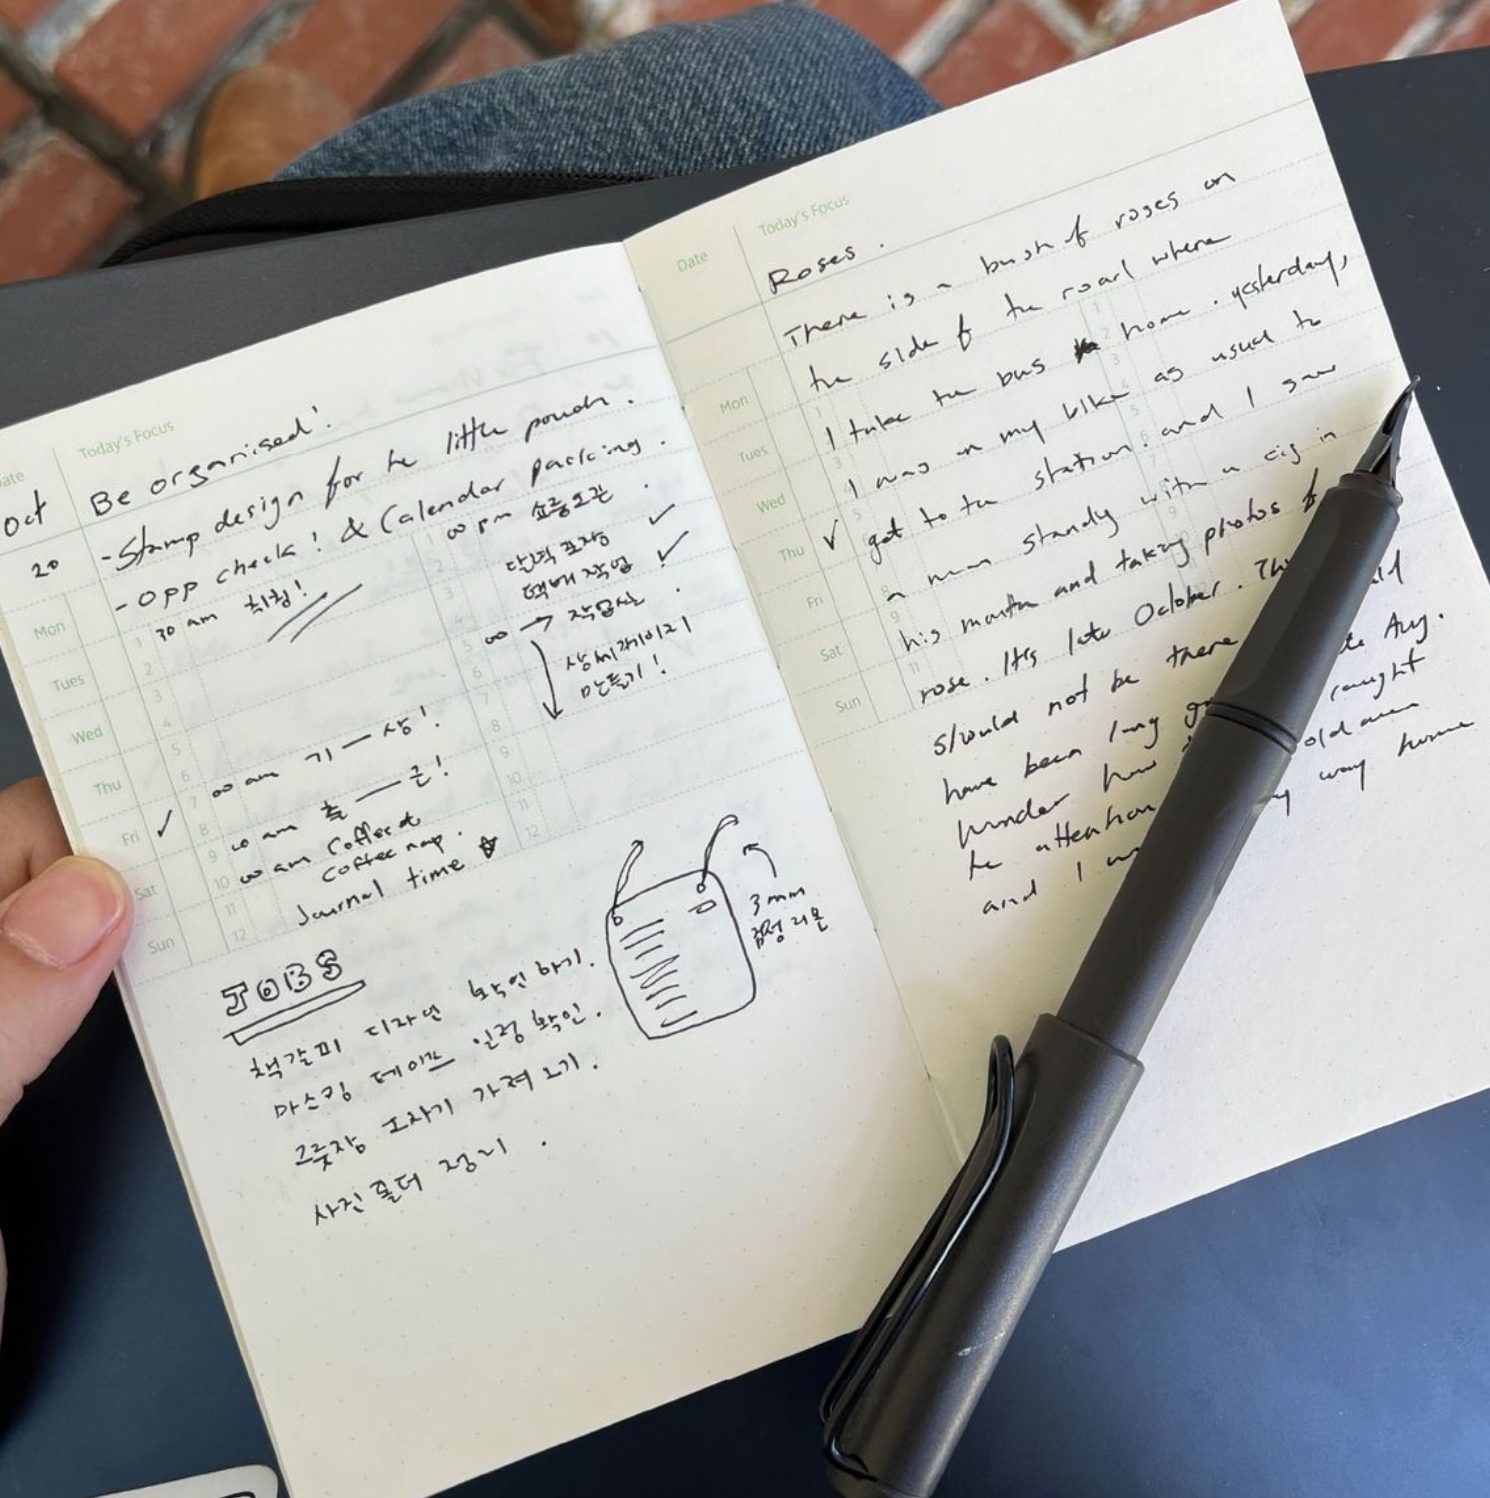 Date
Today's Focus
Oct
20
Be organised!
- Stamp design for the little pouch.
- opp check! & Calendar packing.
Mon
Tues
Wed
Thu
Fri ✓
Sat
Sun
1
2
3
4
5
6
7
8
9
10
11
12
30 am 취침!
00 am 기 — 상!
00 am 출 — 근!
00 am Coffee &
coffee nap.
Journal time
1
2
3
4
5
6
7
8
9
10
11
12
00 pm 쇼룸오픈
달력 포장 ✓
택배 작업 ✓
00 → 작업실.
상세페이지
만들기!
JOBS
책갈피 디자인 확인하기.
마스킹 테이프 일정 확인.
그릇장 도자기 가져오기.
사진 폴더 정리.
3mm
검정 리본
Date
Today's Focus
Roses.
There is a bush of roses on
the side of the road where
I take the bus home. yesterday,
I was on my bike as usual to
get to the station. and I saw
a man standing with a cig in
his mouth and taking photos of
rose. It's late October. The
should not be there Aug.
have been long caught
wonder how old man
he attention way home
and I
Mon
Tues
Wed
Thu ✓
Fri
Sat
Sun